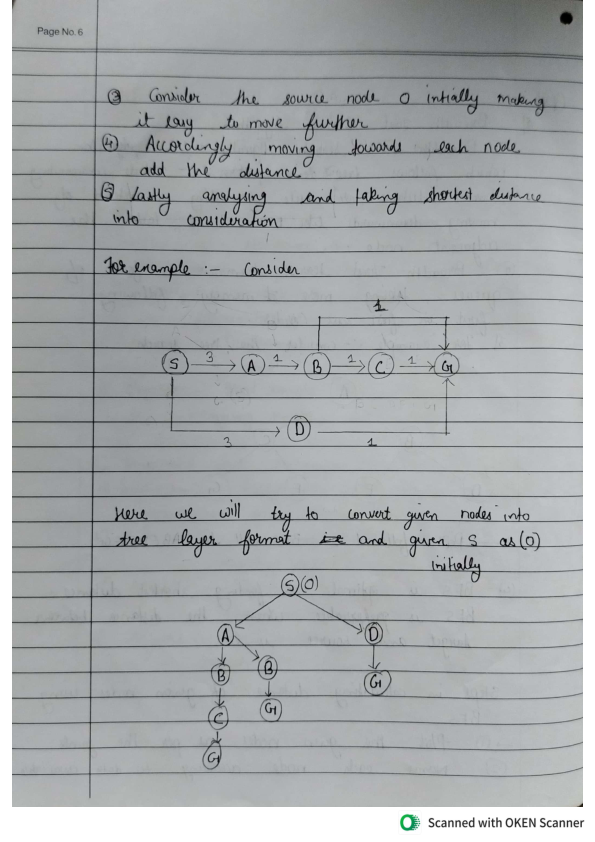 Page No. 6
③ Consider the source node 0 intially making
it easy to move further
④ Accordingly moving towards each node
add the distance
⑤ Lastly analysing and taking shortest distance
into consideration
For example :- Consider
1
S 3 A 1 B 1 C 1 G
D
3 1
Here we will try to convert given nodes into
tree layer format and given S as (0)
initially
S (0)
A D
B B G
C G
G
Scanned with OKEN Scanner